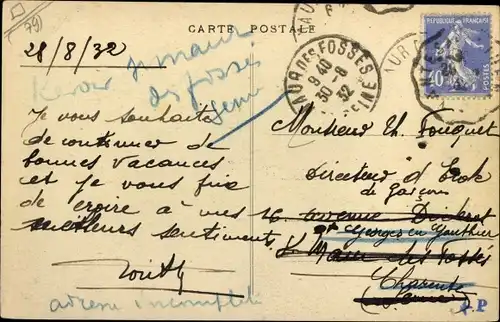 CARTE POSTALE
28/8/32
St Maur
des fossés
Seine
RÉPUBLIQUE FRANÇAISE
40
MAUR DES FOSSÉS
9 40
30 8
32
SEINE
Je vous souhaite
de continuer de
bonnes vacances
et je vous prie
de croire à mes
meilleurs sentiments
Monsieur Ch. Fouquet
Directeur d'Ecole
de Garçons
16 avenue Diderot
St Georges en Gauthier
St Maur des Fossés
Charente
(Seine)
adresse incomplète